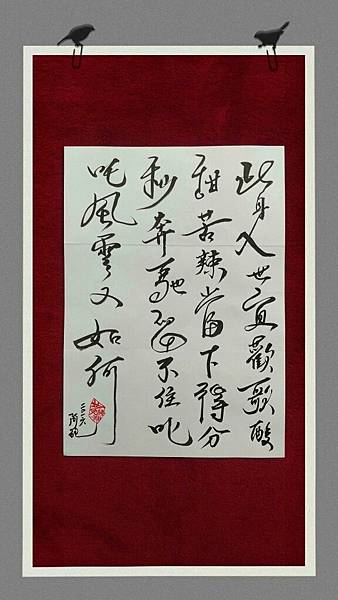 此身入世宜歡歌酸
甜苦辣當下得分
秒奔馳留不住叱
吒風雲又如何